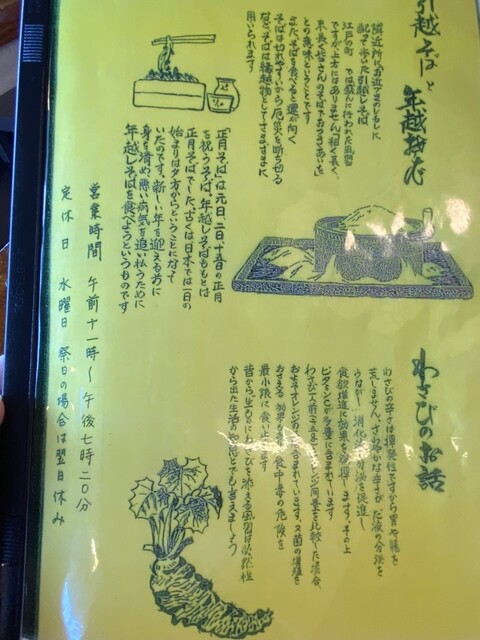 引越そばと年越そば
隣近所にお近づきのしるしに
配って歩いた引越しそば
江戸の町では盛んに行われた風習
ですが上方にはありません「細く長く
末長く皆さんのそばでおつきあいを」
との意味ということです
また、そばを食べると運が向く
そばは切れやすいから厄災を断ち切る
など、そばは縁起物としてさまざまに
用いられます
正月そばは元日、二日、十五日の正月
を祝うそば、年越しそばももとは
正月そばでした、古くは日本では一日の
始まりは夕方からということになって
いたのです。新しい年を迎えるために
身を清め、悪い病気を追い払うために
年越しそばを食べようというものです
わさびのお話
わさびの辛さは揮発性ですから胃や腸を
荒しません、さわやかな辛さがだ液の分泌を
うながし、消化液の分泌を促進し
食欲増進に効果を発揮します、その上
ビタミンCが多量に含まれています
オレンジ同量を比較した場合、
およそオレンジの
含まれています、又菌の増殖を
おさえる効果もあり食中毒の危険を
最小限に食い止めます
昔から生ものにわさびを添える風習は必然性
から出た生活の知恵とでも言えましょう
営業時間 午前十一時〜午後七時二〇分
定休日 水曜日 祭日の場合は翌日休み